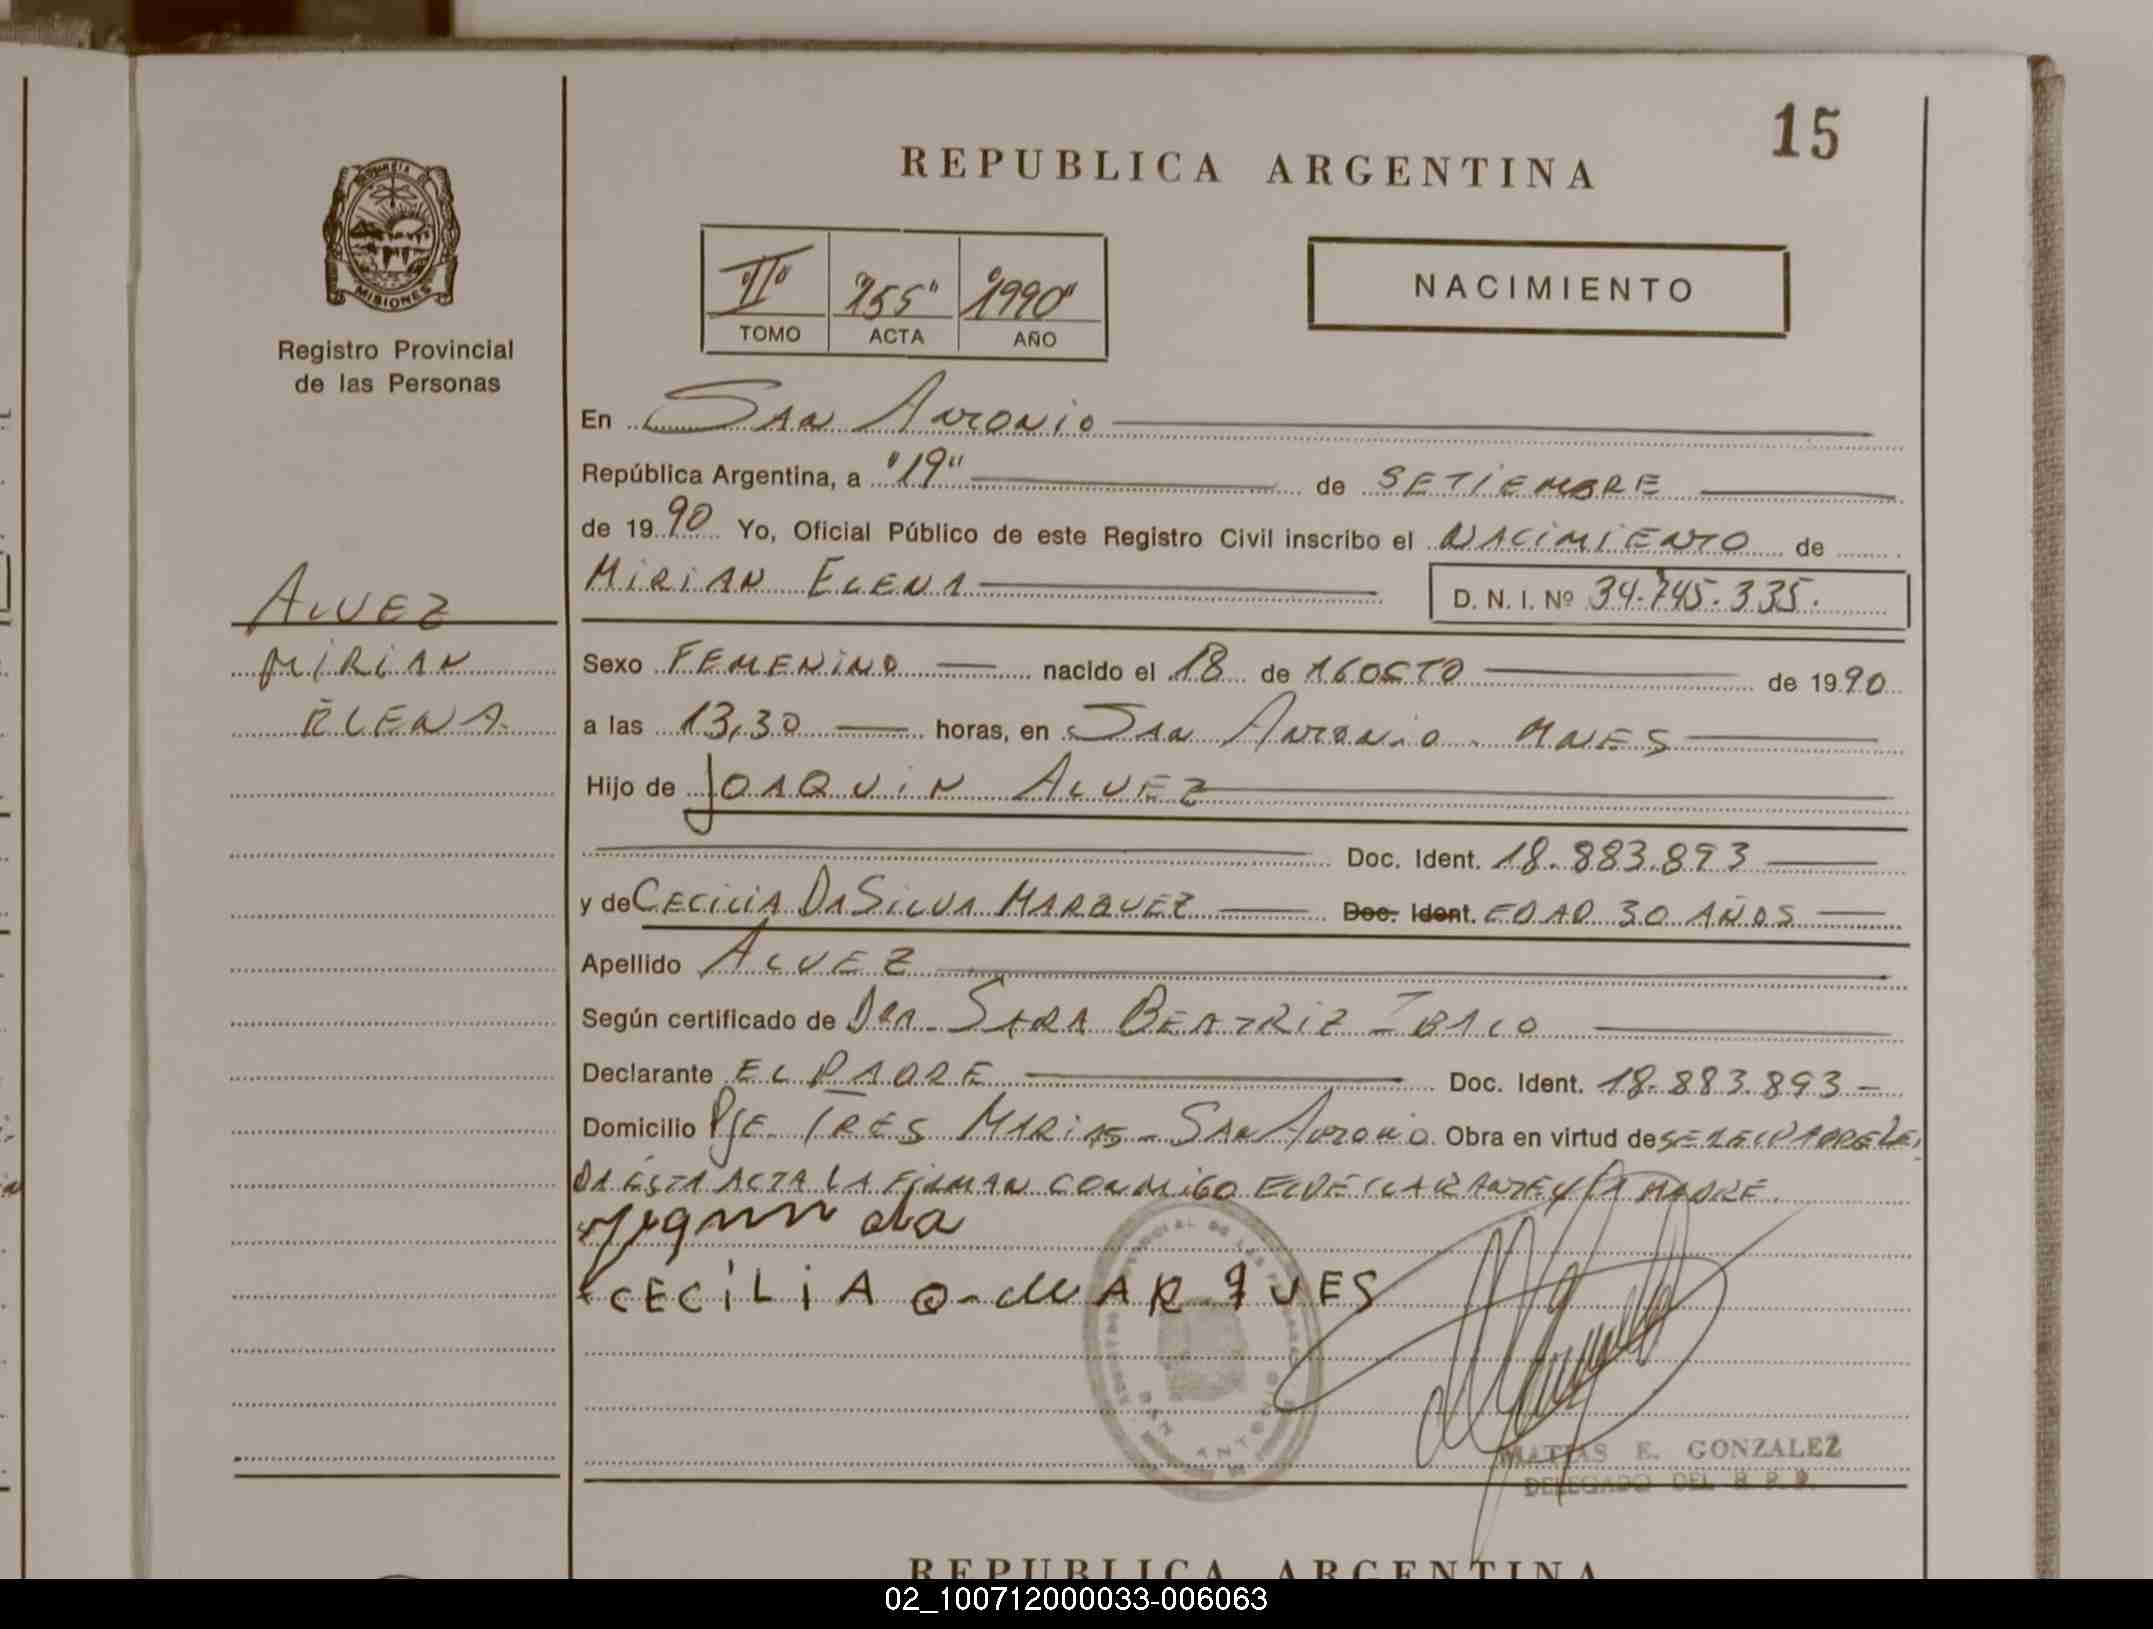 15
REPUBLICA ARGENTINA
MISIONES
Registro Provincial
de las Personas
"II" 255" "1990"
TOMO ACTA AÑO
NACIMIENTO
En San Antonio
República Argentina, a "19" de SETIEMBRE
de 1990 Yo, Oficial Público de este Registro Civil inscribo el NACIMIENTO de
MIRIAN ELENA D. N. I. Nº 34.745.335.
ALVEZ
MIRIAN
ELENA
Sexo FEMENINO nacido el 18 de AGOSTO de 1990
a las 13,30 horas, en San Antonio - MNES
Hijo de JOAQUIN ALVEZ
Doc. Ident. 18.883.893
y de CECILIA DA SILVA MARQUEZ Doc. Ident. EDAD 30 AÑOS
Apellido ALVEZ
Según certificado de DRA. SARA BEATRIZ
Declarante EL PADRE Doc. Ident. 18.883.893
Domicilio PJE. TRES MARIAS - SAN ANTONIO. Obra en virtud de SER EL PADRE LEI
DA ESTA ACTA LA FIRMAN CONMIGO EL DECLARANTE Y LA MADRE.
CECILIA D-MARQUES
SAN ANTONIO
MATIAS E. GONZALEZ
DELEGADO DEL R. P. P.
REPUBLICA ARGENTINA
02_100712000033-006063